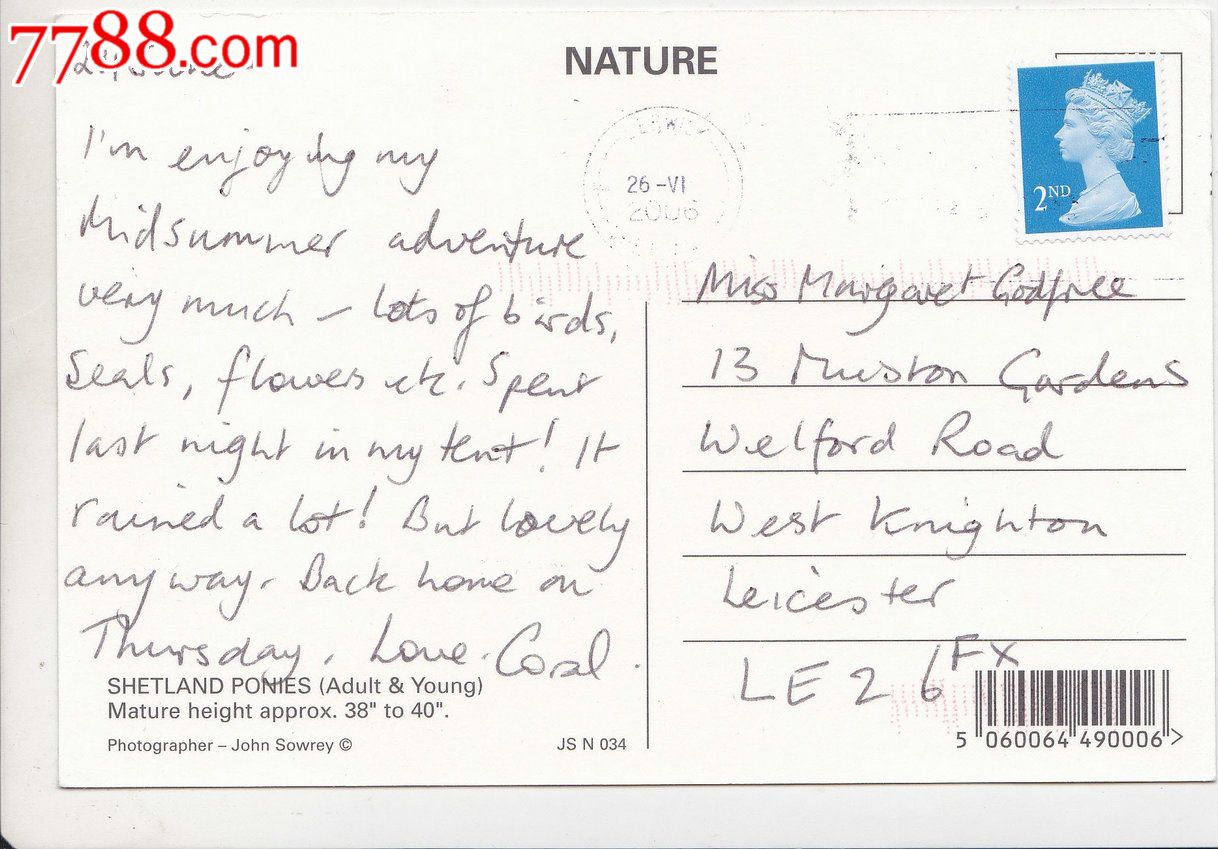 7788.com
NATURE
26-VI
2006
2ND
I'm enjoying my
Midsummer adventure
very much – lots of birds,
Seals, flowers etc. Spent
last night in my tent! It
rained a lot! But lovely
anyway. Back home on
Thursday. Love. Coral.
Miss Margaret Godfree
13 Muston Gardens
Welford Road
West Knighton
Leicester
LE2 6FX
SHETLAND PONIES (Adult & Young)
Mature height approx. 38" to 40".
Photographer – John Sowrey ©
JS N 034
5 060064 490006 >